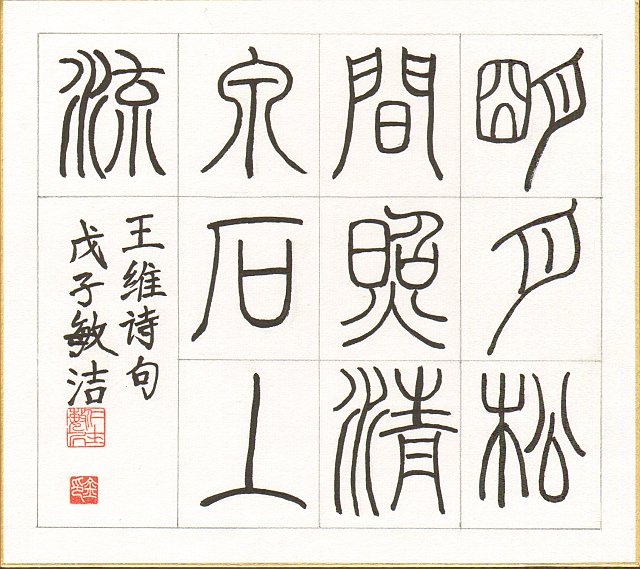 明月松
間照清
泉石上
流
王维诗句
戊子敏洁